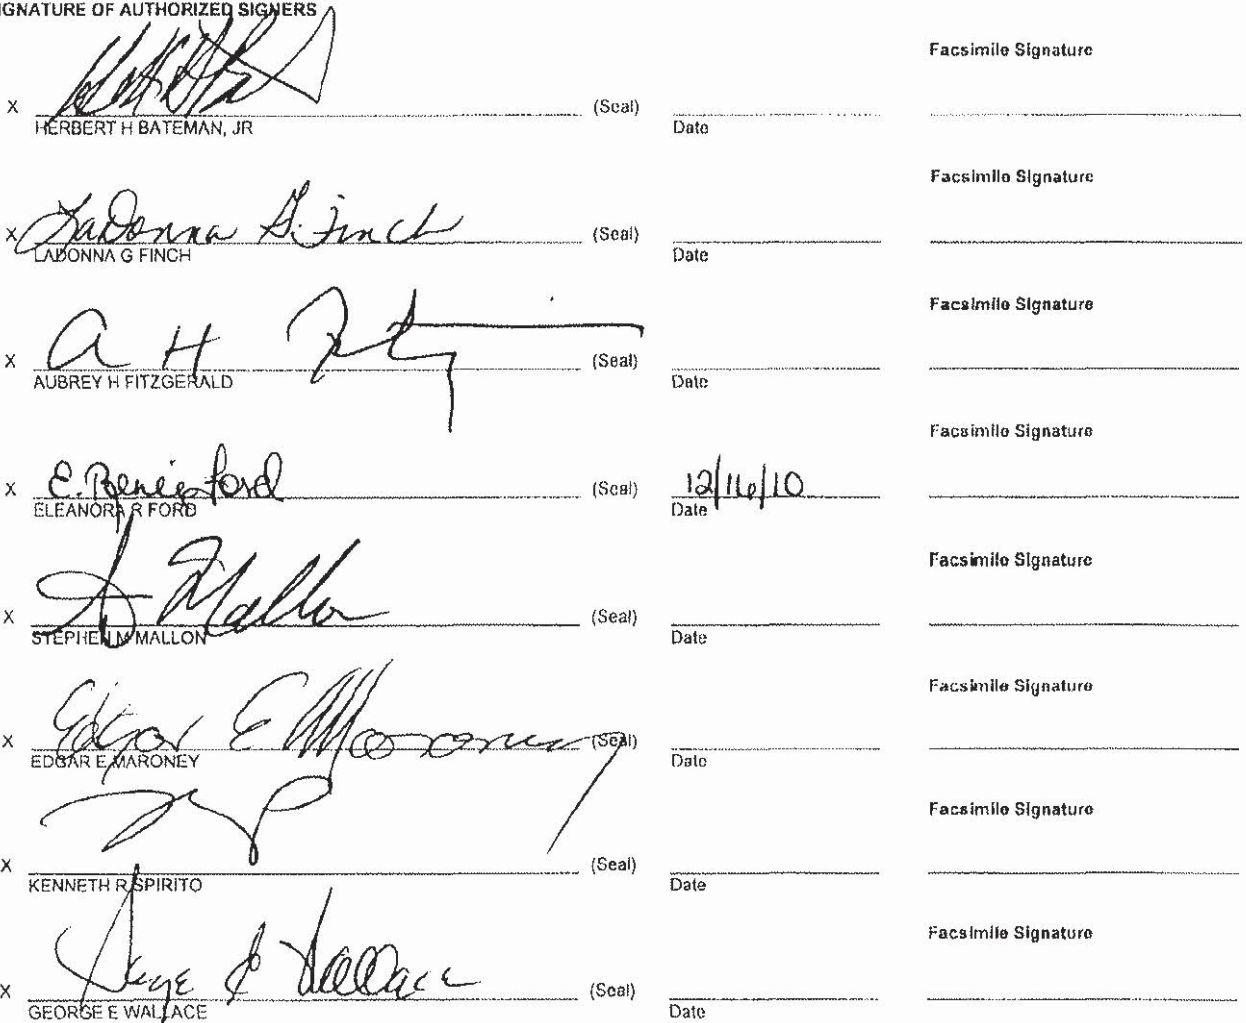 IGNATURE OF AUTHORIZED SIGNERS
Facsimile Signature
X (Seal)
HERBERT H BATEMAN, JR Date
Facsimile Signature
X LaDonna G. Finch (Seal)
LADONNA G FINCH Date
Facsimile Signature
X A H (Seal)
AUBREY H FITZGERALD Date
Facsimile Signature
X E. Renee Ford (Seal) 12/16/10
ELEANORA R FORD Date
Facsimile Signature
X Mallon (Seal)
STEPHEN M MALLON Date
Facsimile Signature
X Edgar E Maroney (Seal)
EDGAR E MARONEY Date
Facsimile Signature
X (Seal)
KENNETH R SPIRITO Date
Facsimile Signature
X George E Wallace (Seal)
GEORGE E WALLACE Date